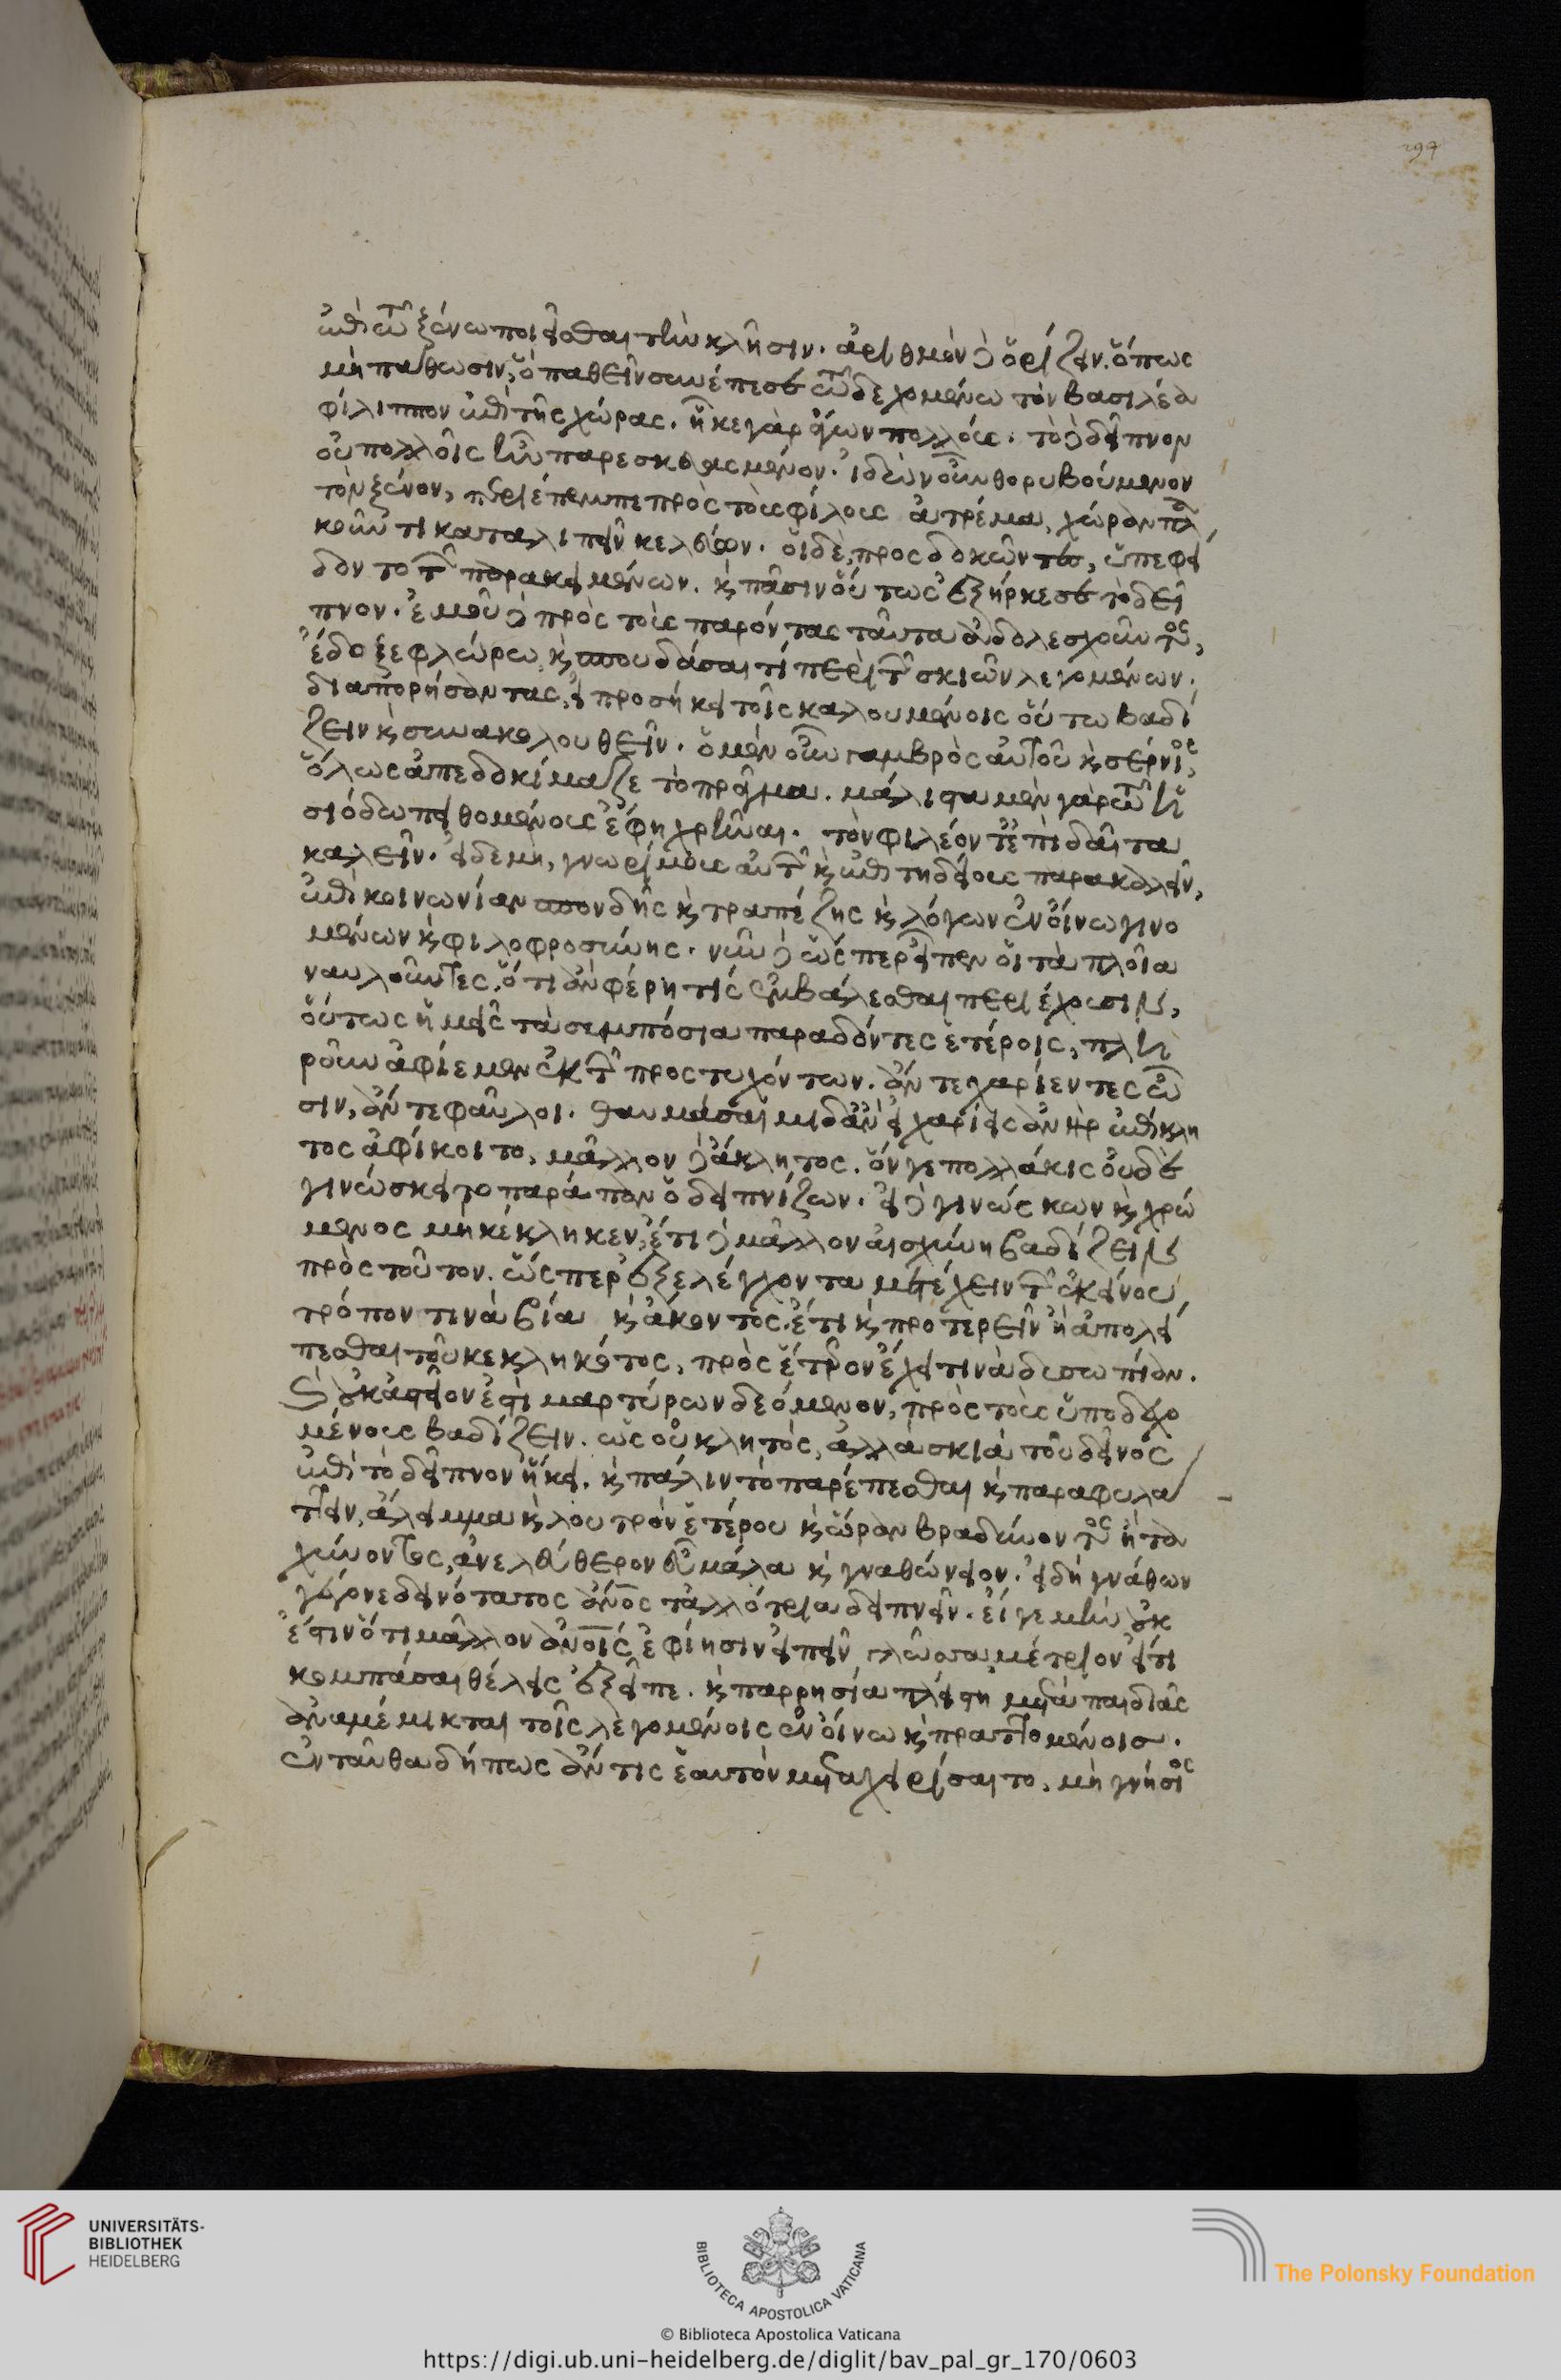 297
ἐπὶ τῷ ξένῳ ποιεῖσθαι τὴν κλῆσιν. ἀριθμὸν δὲ ὁρίζειν. ὅπως
μὴ πάθωσιν, ὃ παθεῖν συνέπεσε τῷ δεχομένῳ τὸν βασιλέα
φίλιππον ἐπὶ τῆς χώρας. ἧκε γὰρ ἄγων πολλούς. τὸ δὲ δεῖπνον
οὐ πολλοῖς ἦν παρεσκευασμένον. ἰδὼν οὖν θορυβούμενον
τὸν ξένον, περιέπεμπε πρὸς τοὺς φίλους ἀτρέμα, χώραν πλα
κοῦντι καταλιπεῖν κελεύων. οἱ δὲ, προσδοκῶντες, ὑπεφεί
δοντο τῶν παρακειμένων. καὶ πᾶσιν οὕτως ἐξήρκεσε τὸ δεῖ
πνον. ἐμοῦ δὲ πρὸς τοὺς παρόντας ταῦτα ἀδολεσχοῦντος,
ἔδοξε φλώρῳ καὶ σπουδάσαι τί περὶ τῶν σκιῶν λεγομένων.
διαπορήσαντας, εἰ προσήκει τοῖς καλουμένοις οὕτω βαδί
ζειν καὶ συνακολουθεῖν. ὁ μὲν οὖν γαμβρὸς αὐτοῦ κὶσέρνιος,
ὅλως ἀπεδοκίμαζε τὸ πρᾶγμα. μάλιστα μὲν γὰρ τῷ ἡ
σιόδῳ πειθομένους ἔφη χρῆναι. τὸν φιλέοντ' ἐπὶ δαῖτα
καλεῖν. εἰ δὲ μὴ, γνωρίμους αὐτῶν καὶ ἐπιτηδείους παρακαλεῖν,
ἐπὶ κοινωνίαν σπονδῆς καὶ τραπέζης καὶ λόγων ἐν οἴνῳ γινο
μένων καὶ φιλοφροσύνης. νῦν δὲ ὥσπερ εἶπεν οἱ τὰ πλοῖα
ναυλοῦντες, ὅτι ἂν φέρῃ τίς ἐμβάλεσθαι περιέχουσιν,
οὕτως ἡμεῖς τὰ συμπόσια παραδόντες ἑτέροις, πλη
ροῦν ἀφίεμεν ἐκ τῶν προστυχόντων. ἄν τε χαρίεντες ὦ
σιν, ἄν τε φαῦλοι. θαυμάσαιμι δ' ἂν εἰ χαρίεις ἀνὴρ ἐπίκλη
τος ἀφίκοιτο, μᾶλλον δὲ ἄκλητος. ὅν γε πολλάκις οὐδὲ
γινώσκει τὸ παράπαν ὁ δειπνίζων. εἰ δὲ γινώσκων καὶ χρώ
μενος μὴ κέκληκεν, ἔτι δὲ μᾶλλον αἰσχύνη βαδίζειν
πρὸς τοῦτον. ὥσπερ ἐξελέγχοντα μετέχειν τῶν ἐκείνου,
τρόπον τινὰ βία καὶ ἄκοντος. ἔτι καὶ προτερεῖν ἢ ἀπολεί
πεσθαι τοῦ κεκληκότος, πρὸς ἕτερον ἔχει τινὰ δυσωπίαν.
καὶ οὐκ ἀστεῖον ἐστὶ μαρτύρων δεόμενον, πρὸς τοὺς ὑποδεχο
μένους βαδίζειν. ὡς οὐ κλητὸς, ἀλλὰ σκιὰ τοῦ δεῖνος
ἐπὶ τὸ δεῖπνον ἥκει. καὶ πάλιν τὸ παρέπεσθαι καὶ παραφυλα
τειν, ἄλειμμα καὶ λουτρὸν ἑτέρου καὶ ὥραν βραδύνοντος ἢ τα
χύνοντος, ἀνελεύθερον εὖ μάλα καὶ γναθώνειον. εἰ δὴ γνάθων
γέγονε δεινότατος ἀνθρώπος τἀλλότρια δειπνεῖν. εἴ γε μὴν οὐκ
ἔστιν ὅτι μᾶλλον ἀνθρώποις ἐφίησιν εἰπεῖν γλῶσσα, μέτριον εἴ τι
κομπάσαι θέλεις ἔξειπε. καὶ παρρησία πλείστη μετὰ παιδιᾶς
ἀναμέμικται τοῖς λεγομένοις ἐν οἴνῳ καὶ πραττομένοισ.
ἐνταῦθα δή πως ἄν τις ἑαυτὸν μεταχειρίσαιτο, μὴ γνήσιος
UNIVERSITÄTS-
BIBLIOTHEK
HEIDELBERG
BIBLIOTECA APOSTOLICA VATICANA
The Polonsky Foundation
© Biblioteca Apostolica Vaticana
https://digi.ub.uni-heidelberg.de/diglit/bav_pal_gr_170/0603